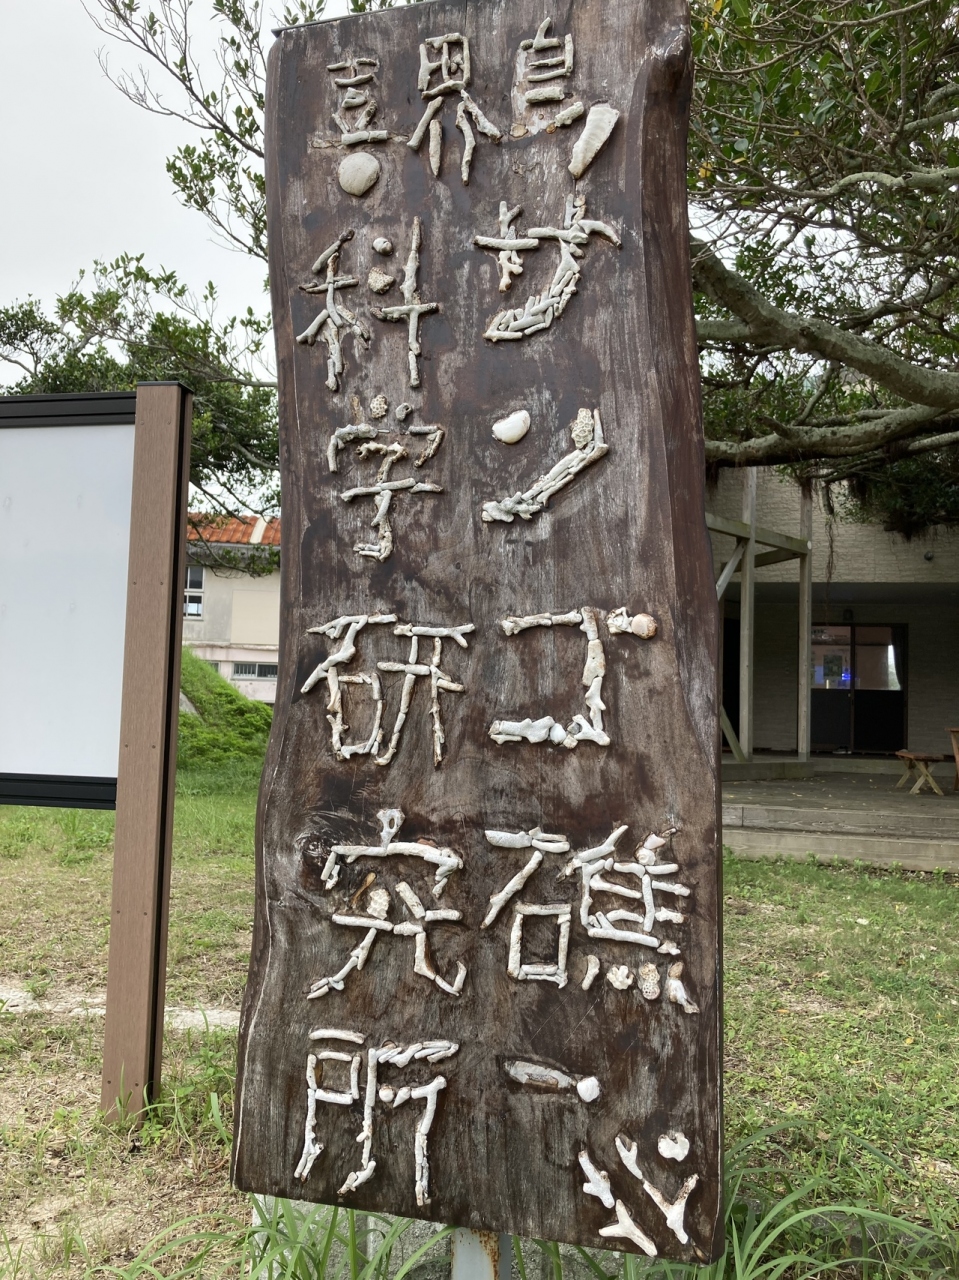 喜界島
サンゴ礁
科学研究所